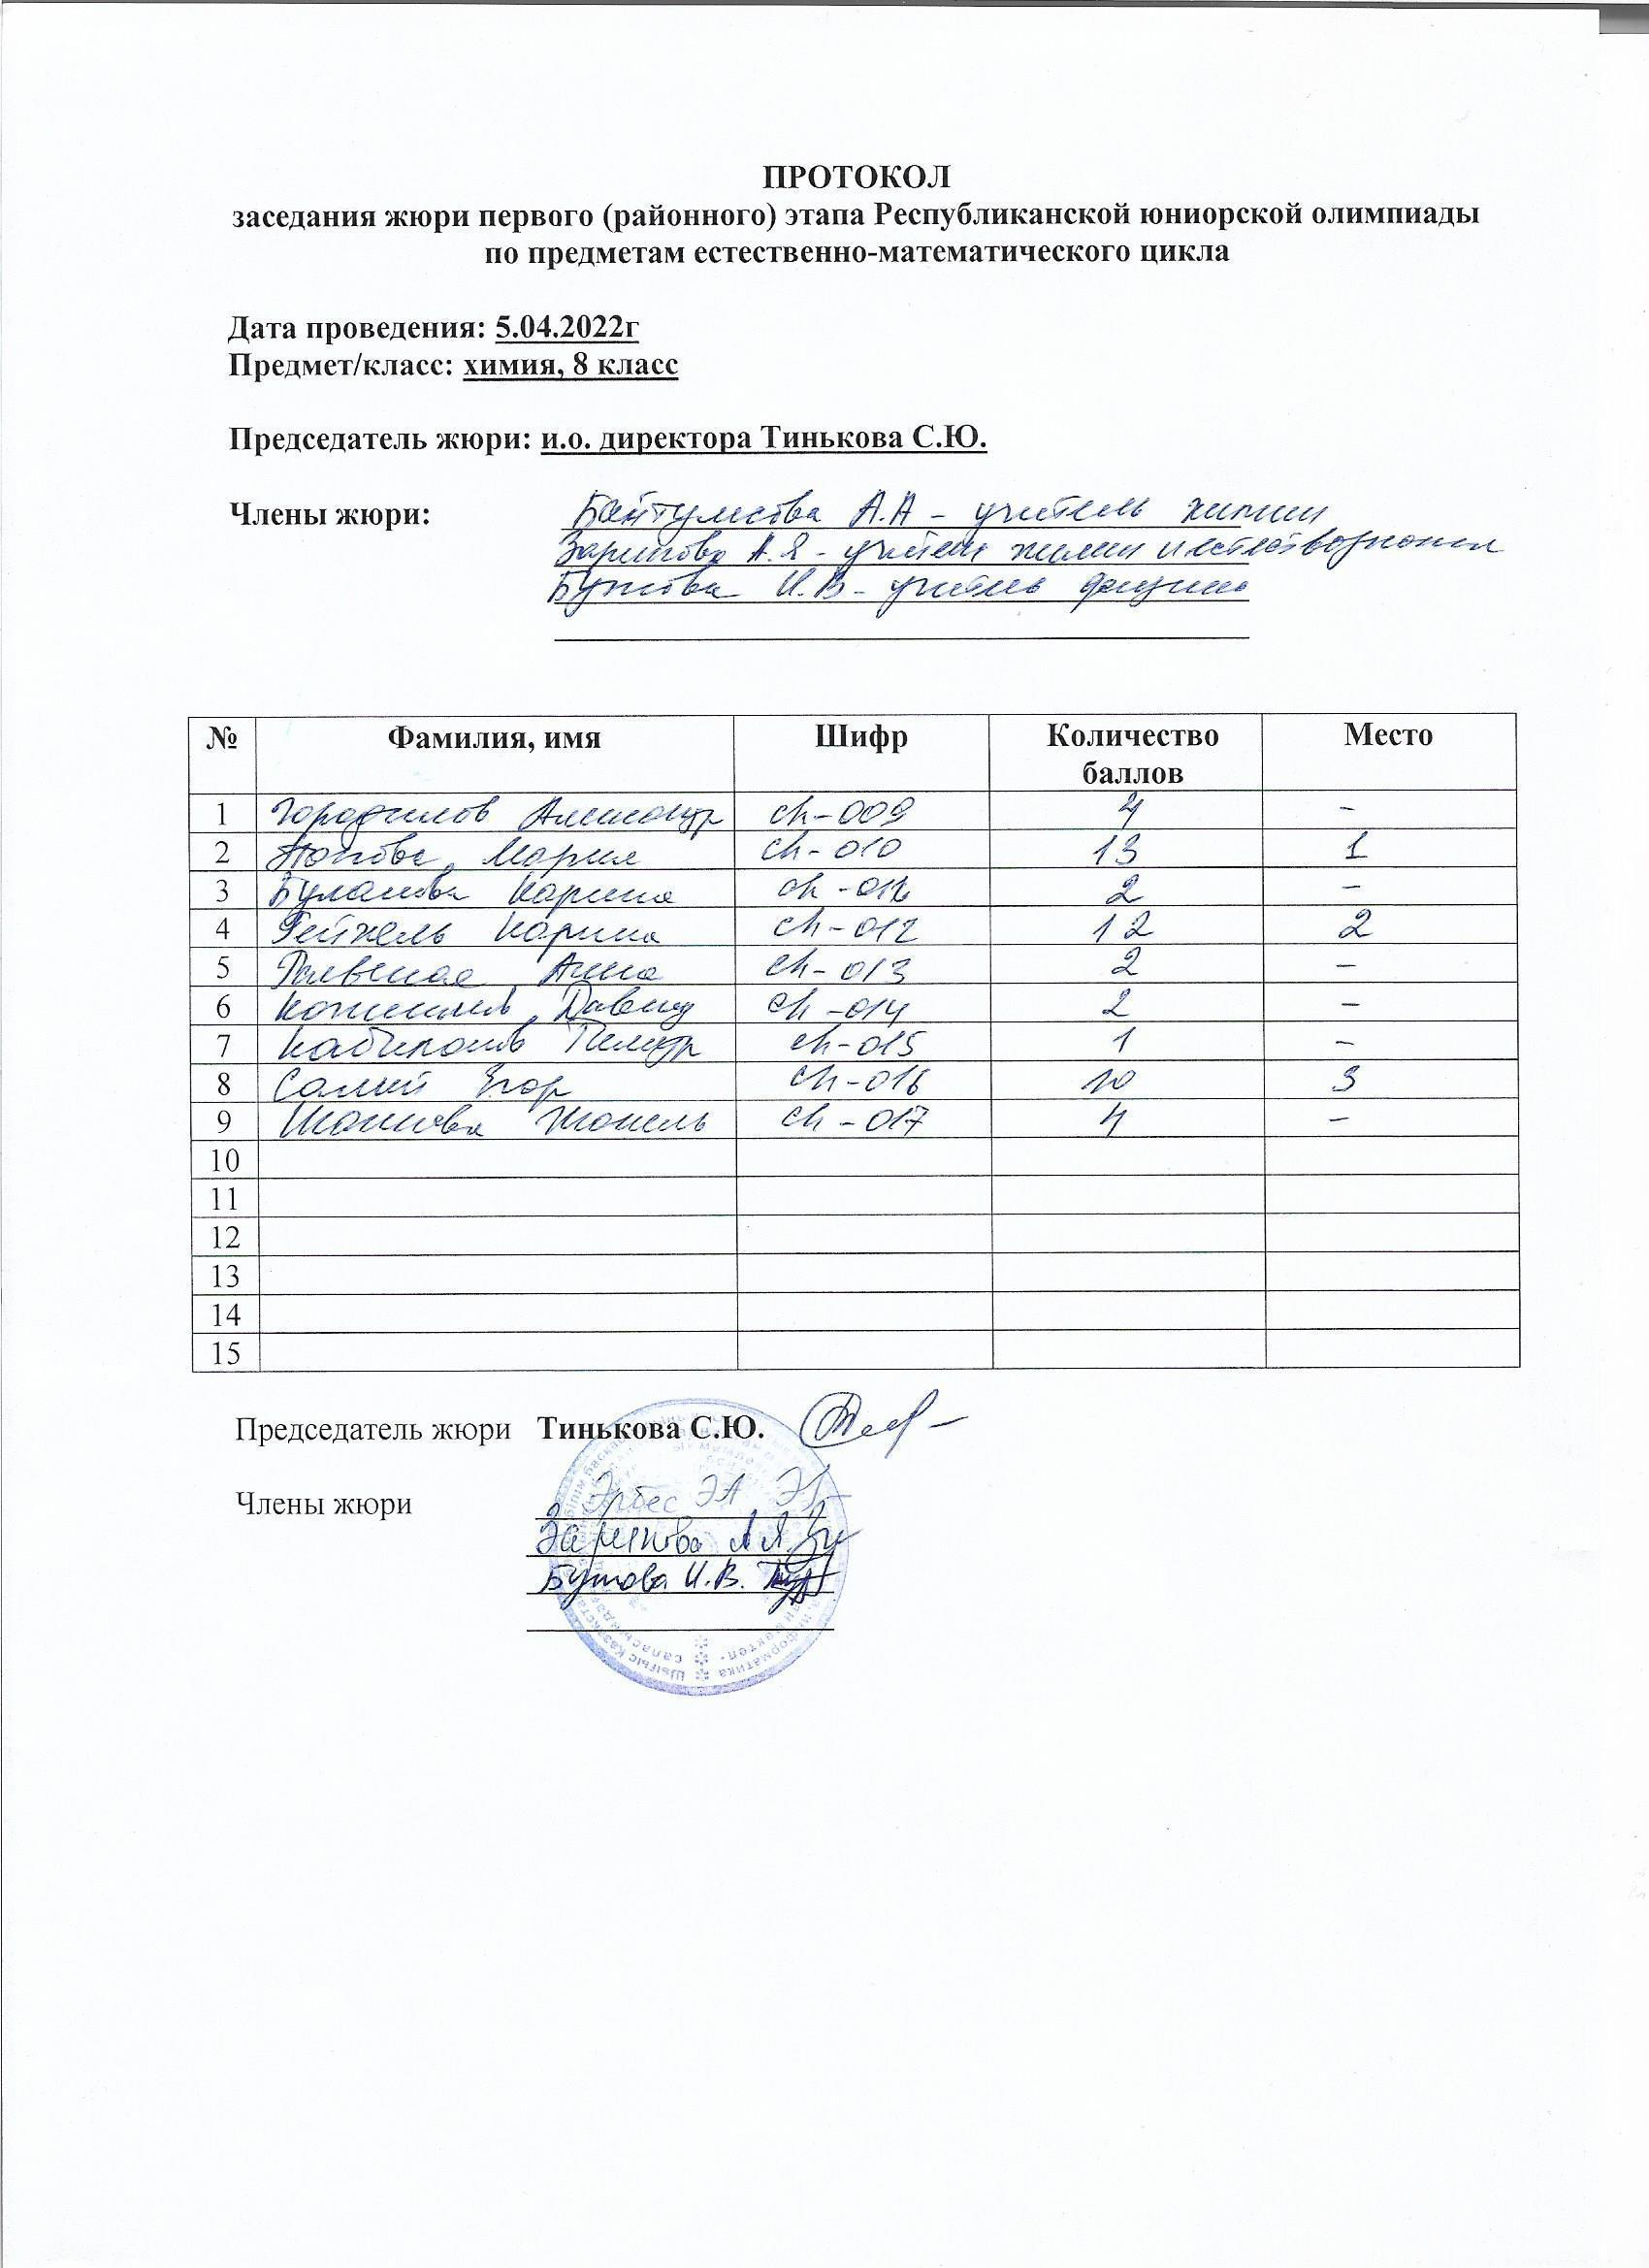 ПРОТОКОЛ
заседания жюри первого (районного) этапа Республиканской юниорской олимпиады
по предметам естественно-математического цикла
Дата проведения: 5.04.2022г
Предмет/класс: химия, 8 класс
Председатель жюри: и.о. директора Тинькова С.Ю.
Члены жюри: А.А - учитель химии
Зарипова А.Я - учитель химии и естествознания
Бутова И.В - учитель физики
№ Фамилия, имя Шифр Количество баллов Место
1 Городилов Александр ch-009 4 -
2 Попова Мария ch-010 13 1
3 Буланова Карина ch- 2 -
4 Гейжель Карина ch-012 12 2
5 Анна ch-013 2 -
6 Давид ch-014 2 -
7 Тимур ch-015 1 -
8 Салий Егор ch-016 10 3
9 Жанель ch-017 4 -
10
11
12
13
14
15
Председатель жюри Тинькова С.Ю.
Члены жюри Эрбес ЭА
Зарипова А.Я.
Бутова И.В.